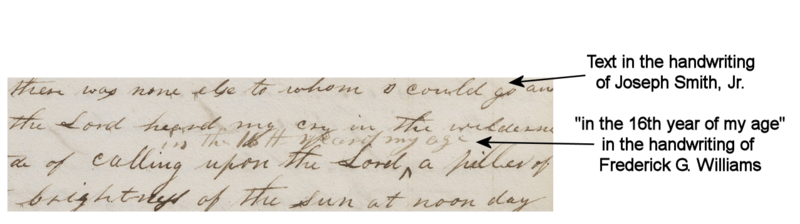 there was none else to whom I could go an
the Lord heard my cry in the wilderne
in the 16th year of my age
de of calling upon the Lord ‸ a piller of
brightness of the sun at noon day
Text in the handwriting
of Joseph Smith, Jr.
"in the 16th year of my age"
in the handwriting of
Frederick G. Williams